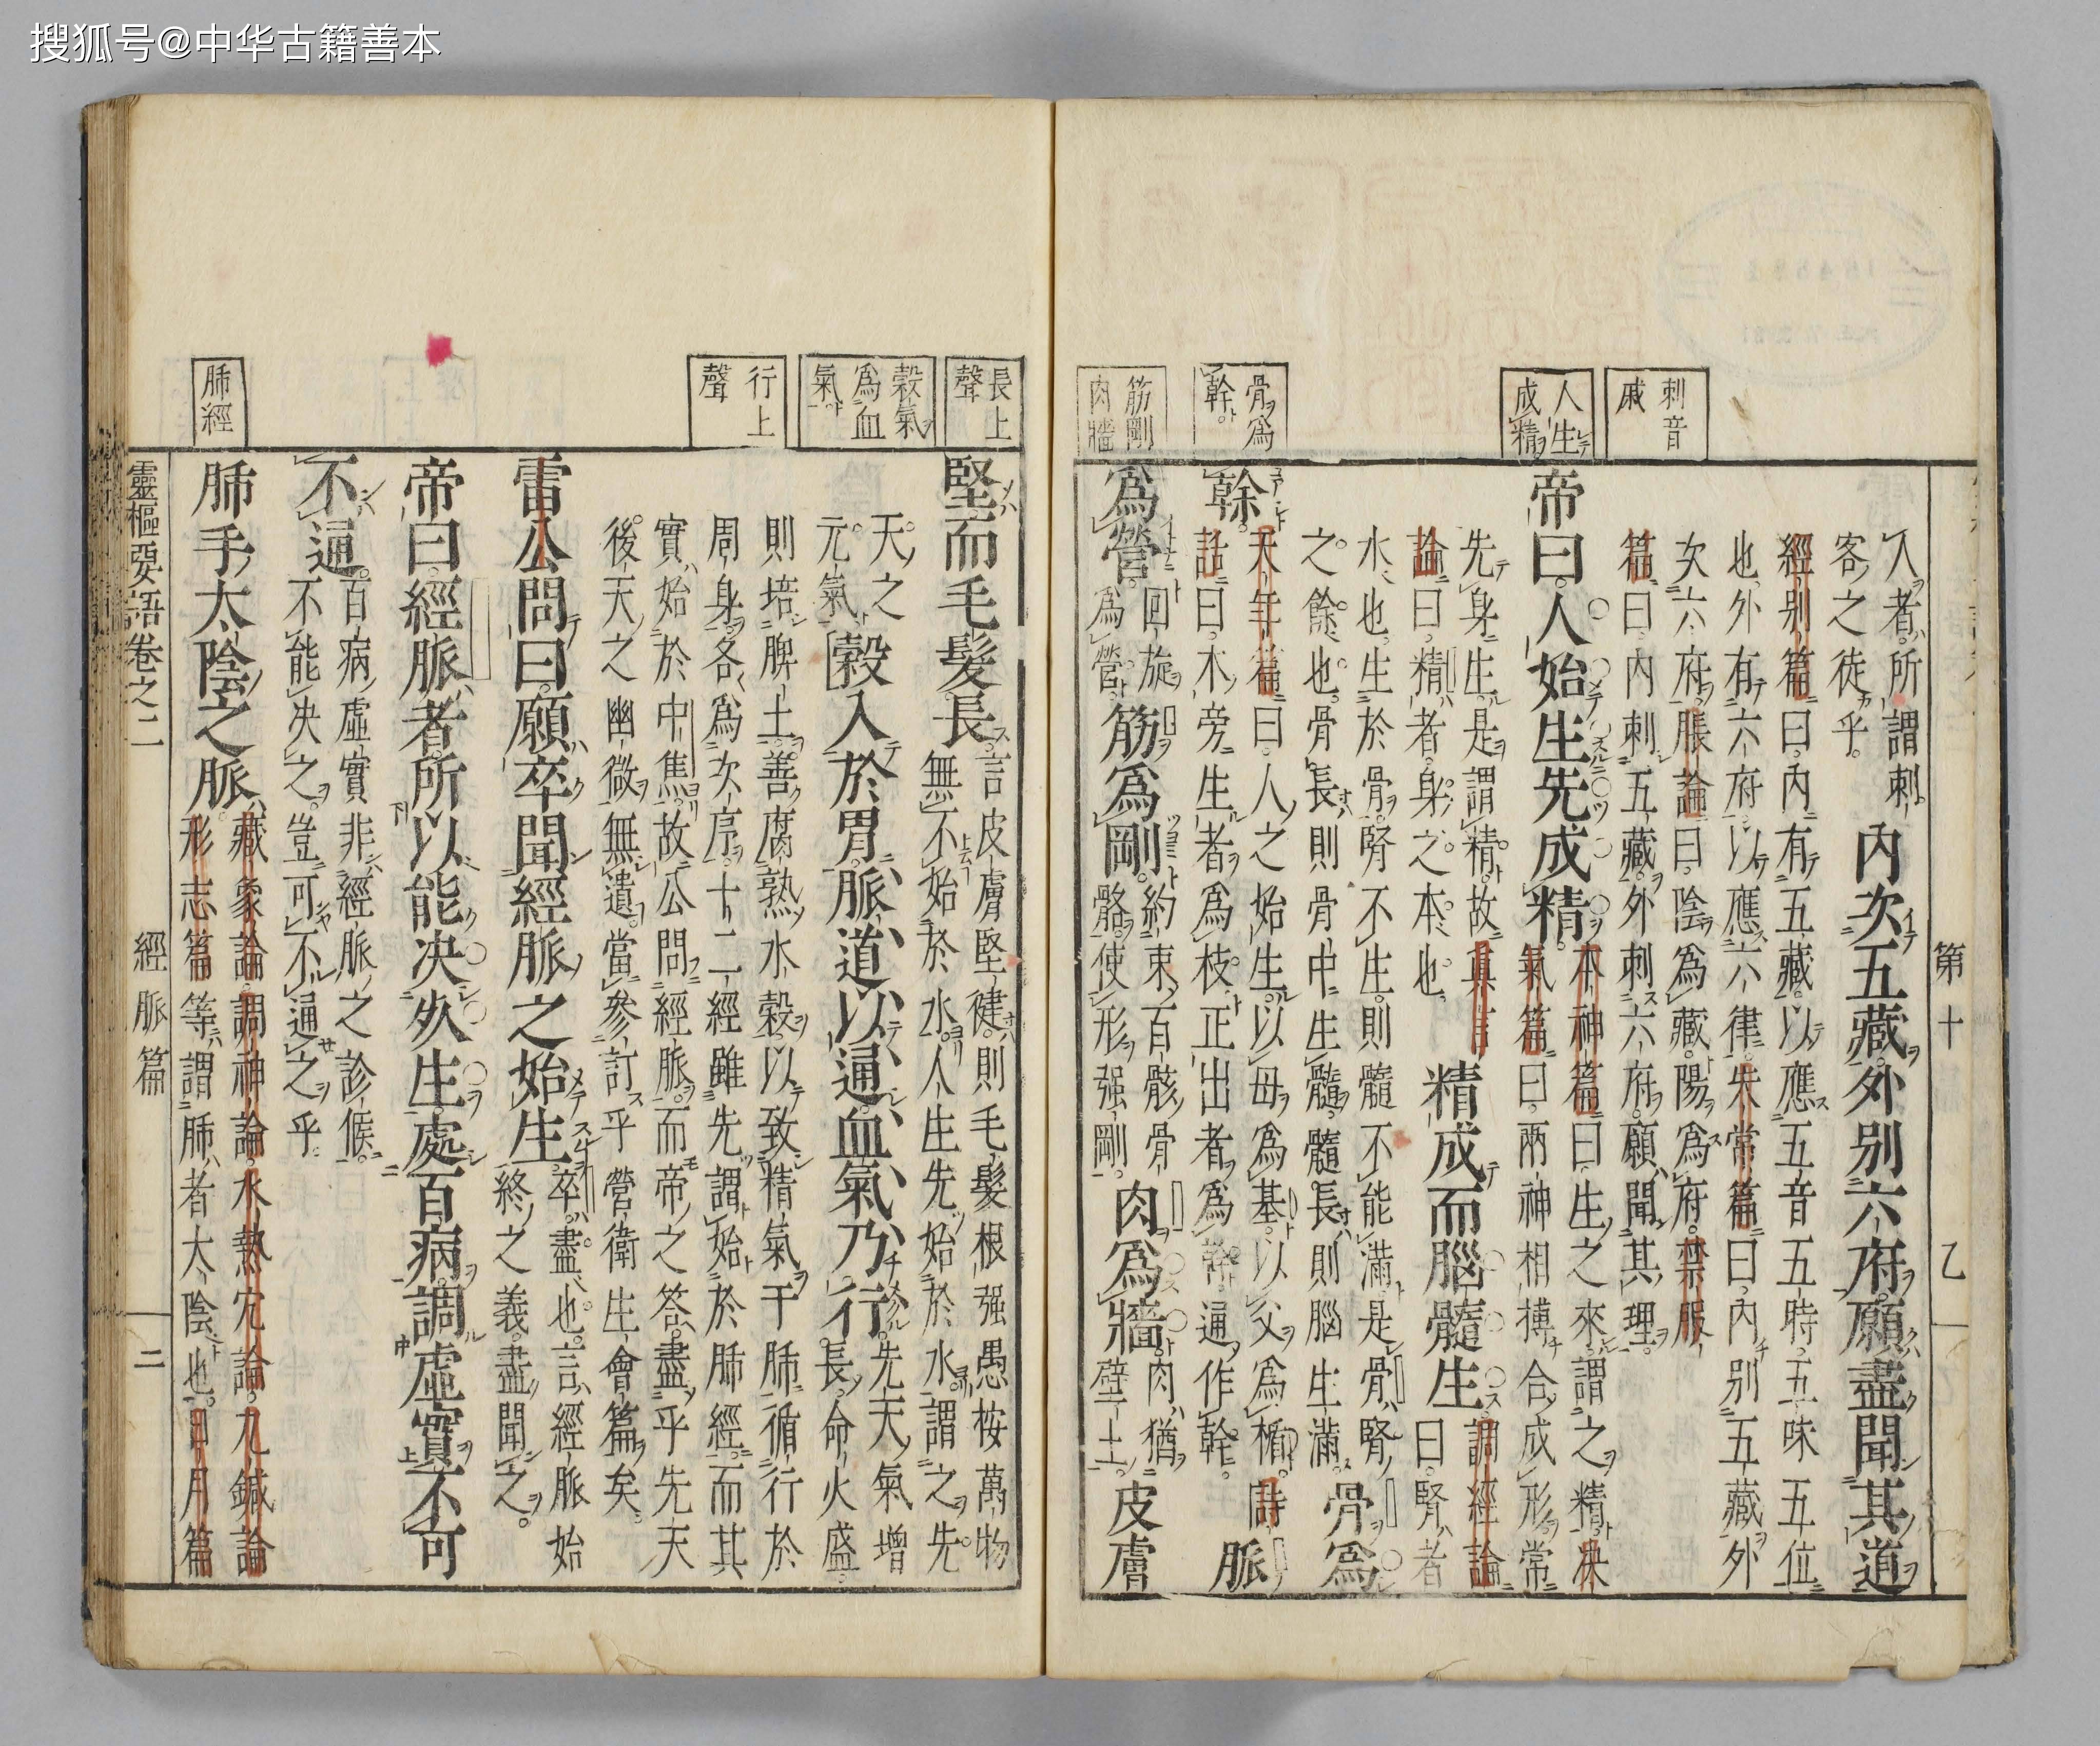 搜狐号@中华古籍善本
第十
乙
刺音
戚
人生
成精
骨爲
幹
筋剛
肉牆
入者所謂刺
客之徒乎
內次五藏外別六府願盡聞其道
經別篇曰內有五藏以應五音五時五味五位
也外有六府以應六律朱常篇曰內別五藏外
次六府脹論曰陰爲藏陽爲府禁服
篇曰內刺五藏外刺六府願聞其理
帝曰人始生先成精
本神篇曰生之來謂之精决
氣篇曰兩神相搏合成形常
先身生是謂精故真言
論曰精者身之本也
精成而腦髓生
調經論
曰腎者
水也生於骨腎不生則髓不能滿是骨腎
之餘也骨長則骨中生髓髓長則腦生滿
骨爲
幹
天年篇曰人之始生以母爲基以父爲楯詩
詁曰木旁生者爲枝正出者爲幹通作幹
脈
爲營
回旋
爲營
筋爲剛
約束百骸骨
骼使形强剛
肉爲牆
肉猶
壁土
皮膚
長上
聲
穀氣
爲血
氣
行上
聲
肺經
堅而毛髮長
言皮膚堅健則毛髮根强愚按萬物
無不始於水人生先始於水謂之先
天之
元氣
穀入於胃脈道以通血氣乃行
先天氣增
長命火盛
則培脾土善腐熟水穀以致精氣干肺循行於
周身各爲次序十二經雖先謂始於肺經而其
實始於中焦故公問經脈而帝之答盡乎先天
後天之幽微無遺當參訂乎營衛生會篇矣
雷公問曰願卒聞經脈之始生
卒盡也言經脈始
終之義盡聞之
帝曰經脈者所以能决死生處百病調虛實不可
不通
百病虛實非經脈之診候
不能决之豈可不通之乎
肺手太陰之脈
藏象論調神論水熱穴論九鍼論
形志篇等謂肺者太陰也日月篇
靈樞要語卷之二
經脈篇
二